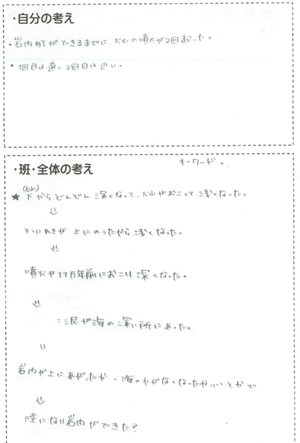 ・自分の考え
・岩内町ができるまでに、火山の噴火が2回起った。
・1回目は遠い2回目は近い。
・班・全体の考え
キーワード。
★下からどんどん深くなって、火山がおこって浅くなった。
⇓
が上にのったから浅くなった。
⇓
噴火や 万年前におこり深くなった。
⇓
泥が海の深い所にあった。
⇓
岩内が上にあがったか、海の水がなくなったかいいとかで
⇓
陸になり岩内ができた?